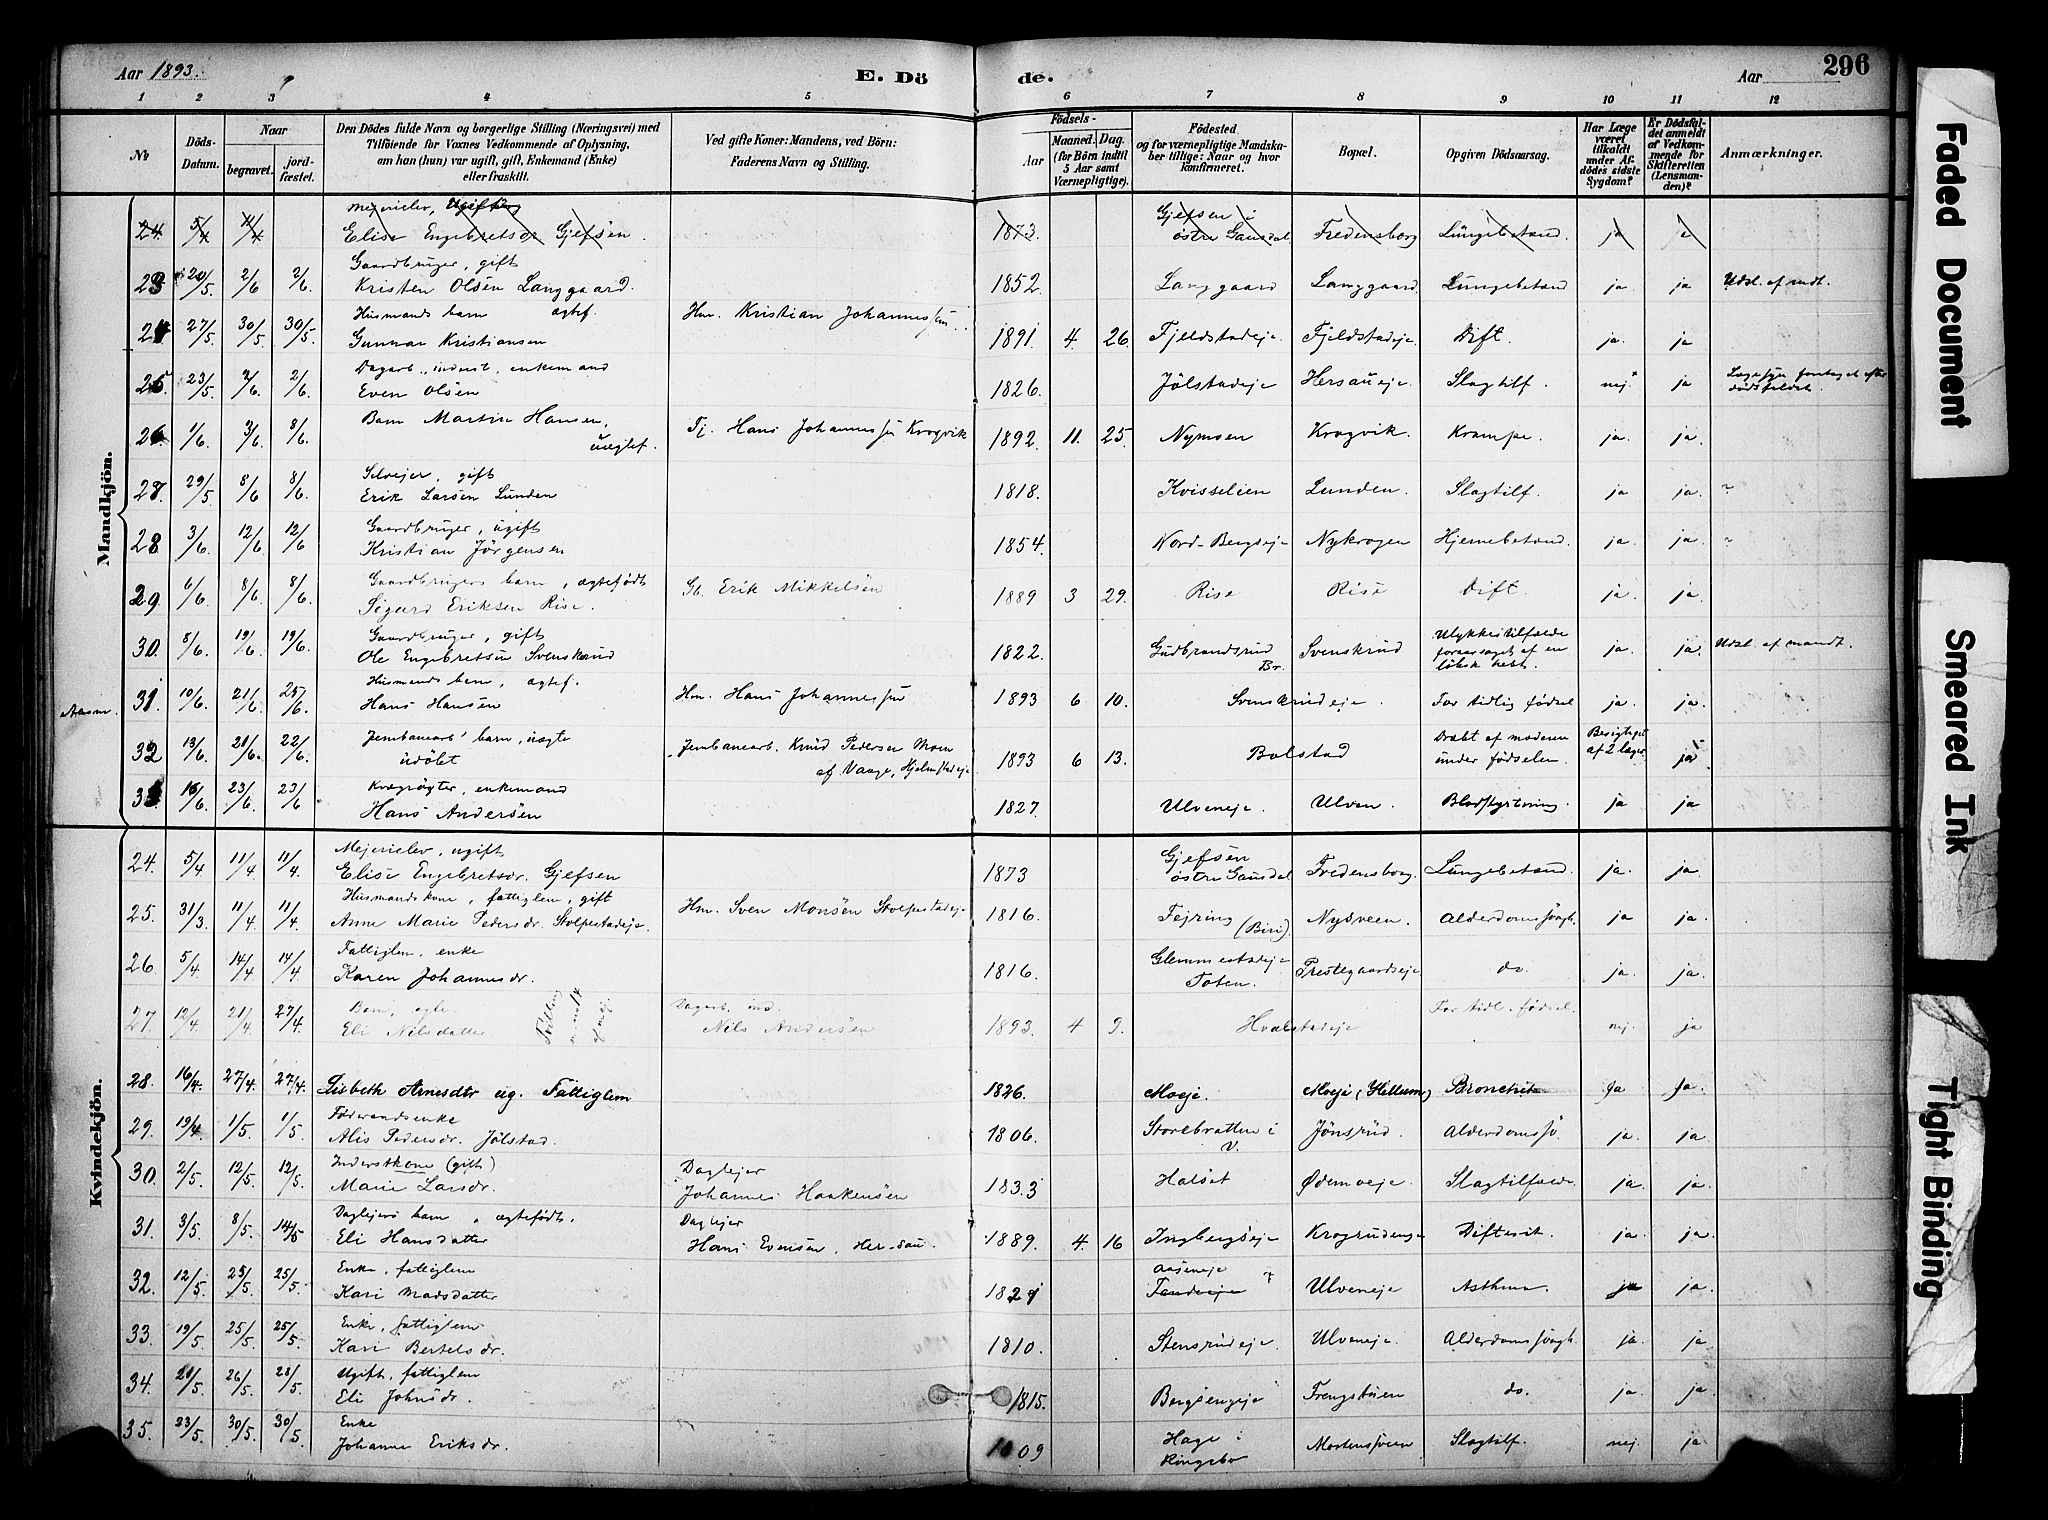 Aar 1893.
E. Dö de.
Aar
296
1 2 3 4 5 6 7 8 9 10 11 12
No
Döds-Datum.
Naar
begravet.
jordfæstet.
Den Dödes fulde Navn og borgerlige Stilling (Næringsvei) med
Tilföiende for Voxnes Vedkommende af Oplysning,
om han (hun) var ugift, gift, Enkemand (Enke)
eller fraskilt.
Ved gifte Koner: Mandens, ved Börn:
Faderens Navn og Stilling.
Födsels-
Aar
Maaned. Dag.
(for Börn indtil
5 Aar samt
Værnepligtige).
Födested
og for værnepligtige Mandska-
ber tillige: Naar og hvor
konfirmeret.
Bopæl.
Opgiven Dödsaarsag.
Har Læge
været
tilkaldt
under Af-
dödes sidste
Sygdom?
Er Dödsfal-
det anmeldt
af Vedkom-
mende for
Skifteretten
(Lensman-
den)?
Anmærkninger.
Mandkjön.
24. 5/4 11/4 Mejerielev, Ugift
Elise Engebretsdr Gjefsen. 1873. Gjefsen i østre Gausdal Fredensborg Lungebetænd. ja
23 20/5 2/6 2/6 Gaardbruger, gift
Kristen Olsen Langgaard. 1852. Langgaard Langgaard Lungebetænd ja ja
24 27/5 30/5 30/5 Husmands barn ægtef.
Gunnar Kristiansen Hm. Kristian Johannessen 1891. 4. 26. Fjeldstadeje Fjeldstadeje Dift. ja. ja
25 23/5 2/6 2/6 Dagarb., inderst, enkemand
Even Olsen 1826. Jölstadeje Hersaueje. Slagtilf. nej ja
26. 1/6 3/6 8/6 Barn Martin Hansen,
uægtef. Fj. Hans Johannessen Krogvik 1892 11. 25. Nymoen Krogvik. Krampe. ja. ja.
27. 29/5 8/6 8/6 Selvejer, gift
Erik Larsen Lunden 1818. Kvisselien Lunden. Slagtilf. ja ja. "
28. 3/6 12/6 12/6 Gaardbruger, ugift
Kristian Jörgensen 1854. Nord-Bergseje Nykrogen Hjernebetænd. ja. ja. "
29. 6/6. 8/6 8/6 Gaardbrugers barn, ægtefödt
Sigurd Eriksen Rise. Gb. Erik Mikkelsen 1889 3 29. Rise Rise Dift. ja. ja
30. 8/6. 19/6 19/6 Gaardbruger, gift
Ole Engebretsen Svenskrud 1822. Gudbrandsrud Br. Svenskrud Ulykkestilfælde
foraarsaget af en
löbsk hest. ja. ja. Udsl. af mandt.
Aasm. 31. 10/6 21/6 25/6 Husmands barn, ægtef.
Hans Hansen Hm. Hans Johannessen 1893 6 10. Svenskrudeje. For tidlig födsel ja. ja.
32 13/6 21/6. 22/6 Jernbanearb. barn, uægte
udöbt Jernbanearb. Knud Pedersen Moen
af Vaage, Hjelmstadeje 1893 6 13. Bolstad Dræbt af moderen
under födselen. Besigtiget
af 2 læger ja
33. 16/6. 23/6. 23/6 Kvægrögter, enkemand
Hans Andersen 1827. Ulveneje. Ulven. Blodstyrtning. ja ja
Kvindekjön.
24. 5/4 11/4 11/4 Mejerielev, ugift
Elise Engebretsdr. Gjefsen 1873 Gjefsen
østre Gausdal Fredensborg. Lungebetænd. ja. ja.
25. 31/3 11/4 11/4 Husmandskone, fattiglem, gift
Anne Marie Pedersdr. Stolpestadeje. Hm. Sven Monsen Stolpestadeje 1816. Fejring
(Biri). Nysveen. Alderdomssvagh. ja ja.
26 5/4 14/4 14/4 Fattiglem, enke
Karen Johannesdr. 1816. Glemmestadeje
Toten. Prestegaardseje do. ja. ja.
27. 12/4 21/4. 27/4 Barn, ægte
Eli Nilsdatter Dagarb. ind.
Nils Andersen 1893. 4 9. Hvalstadeje For tidl. födsel. nej. ja
28. 16/4. 27/4. 27/4. Lisbeth Arnesdtr ug. Fattiglem 1826. Moeje. Moeje (Hellum) Bronchit Ja Ja.
29. 19/4 1/5. 1/5 Föderaadsenke
Alis Pedersdr. Jölstad. 1806. Storebratten i
V. Jönsrud. Alderdomssv. ja. ja.
30. 2/5. 12/5. 12/5. Inderstkone (gift)
Marie Larsdr. Daglejer
Johannes Haakensen 1833 Halset Ødemoeje. Slagtilfælde ja. ja.
31. 3/5. 8/5. 14/5 Daglejers barn, ægtefödt.
Eli Hansdatter Daglejer
Hans Evensen, Hersau. 1889. 4. 16 Ingbergseje Krogrudenge Difterit. ja. ja.
32. 12/5. 25/5. 25/5. Enke, fattiglem
Kari Madsdatter 1821 Aaseneje Ulveneje Asthma. ja ja.
33. 19/5. 25/5 25/5. Enke, fattiglem
Kari Bertelsdr. 1810. Stensrudeje. Ulveneje. Alderdomssvagh. ja ja
34. 20/5. 26/5. 28/5. Ugift, fattiglem
Eli Johnsdr. 1815. Bergsengeje Frengstuen do. ja. ja.
35. 23/5. 30/5. 30/5. Enke
Johanne Eriksdr. 1809 Hage i
Ringebo Mortenssveen Slagtilf. nej. ja.
Faded Document
Smeared Ink
Tight Binding